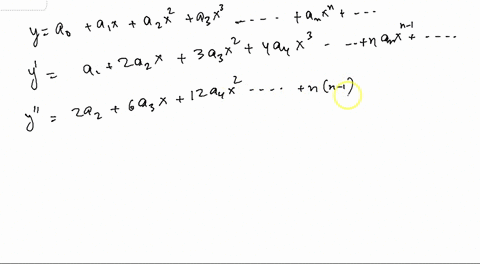 y = a₀ + a₁x + a₂x² + a₃x³ ----- + aₙxⁿ + ...
y' = a₁ + 2a₂x + 3a₃x² + 4a₄x³ - --- + n aₙxⁿ⁻¹ + ....
y'' = 2a₂ + 6a₃x + 12a₄x² ---- .. + n(n-1)